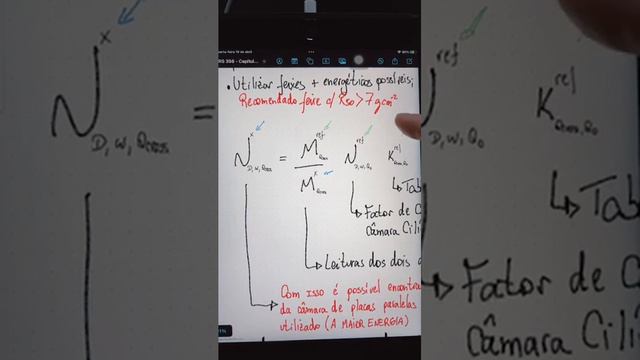 TRS 398 - Capítul
• Utilizar feixes + energéticos possíveis;
Recomendado feixe c/ R50 > 7 g cm⁻²
N^x_{D,W,Qcross} = M^ref_{Qcross} / M^x_{Qcross} N^ref_{D,W,Q0} K^rel_{Qcross,Q0}
↳ Tab
Factor de C
câmara Cilí
Leituras dos dois
Com isso é possível encontra
da câmara de placas paralelas
utilizado (A MAIOR ENERGIA)